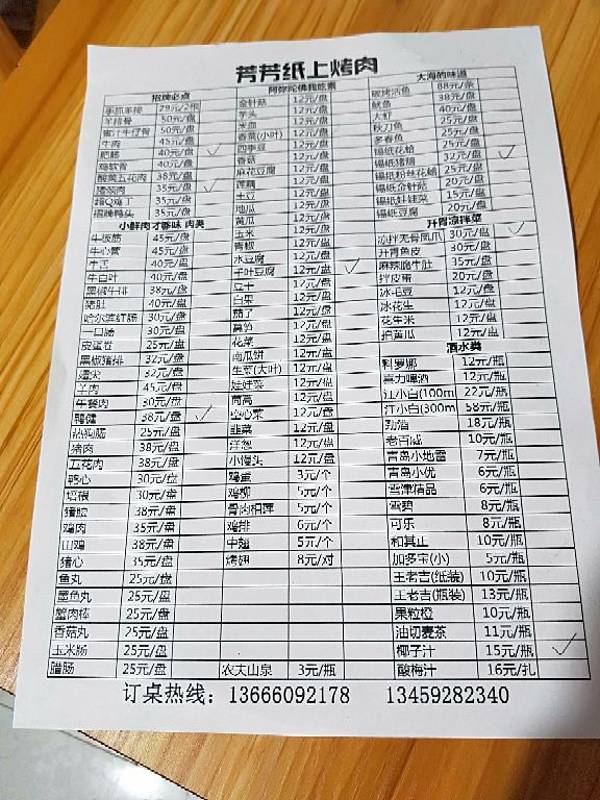 芳芳纸上烤肉
招牌必点
手抓羊排 29元/2根
羊排骨 50元/盘
蜜汁牛仔骨 50元/盘
牛肉 45元/盘
肥肠 40元/盘
鸡软骨 40元/盘
酸菜五花肉 38元/盘
猪颈肉 35元/盘
招Q鸡丁 35元/盘
招牌鸭头 35元/盘
小鲜肉才香味 肉类
牛板筋 45元/盘
牛心管 45元/盘
牛舌 40元/盘
牛百叶 40元/盘
黑椒牛排 38元/盘
猪肚 40元/盘
哈尔滨红肠 30元/盘
一口肠 30元/盘
皮蛋卷 25元/盘
黑椒猪排 32元/盘
32元/盘
羊肉 45元/盘
午餐肉 30元/盘
38元/盘
热狗肠 25元/盘
猪肉 38元/盘
五花肉 38元/盘
鸭心 30元/盘
培根 30元/盘
38元/盘
鸡肉 35元/盘
38元/盘
猪心 35元/盘
鱼丸 25元/盘
墨鱼丸 25元/盘
蟹肉棒 25元/盘
香菇丸 25元/盘
玉米肠 25元/盘
腊肠 25元/盘
阿弥陀佛我吃素
金针菇 12元/盘
芋头 12元/盘
12元/盘
香菜(小叶) 12元/盘
四季豆 12元/盘
香菇 12元/盘
麻花豆腐 12元/盘
莲藕 12元/盘
土豆 12元/盘
地瓜 12元/盘
黄瓜 12元/盘
玉米 12元/盘
青椒 12元/盘
水豆腐 12元/盘
千叶豆腐 12元/盘
豆干 12元/盘
白果 12元/盘
茄子 12元/盘
莴笋 12元/盘
花菜 12元/盘
南瓜饼 12元/盘
生菜(大叶) 12元/盘
娃娃菜 12元/盘
茼蒿 12元/盘
空心菜 12元/盘
韭菜 12元/盘
洋葱 12元/盘
小馒头 12元/盘
鸡蛋 3元/个
鸡柳 5元/个
骨肉相连 5元/个
鸡排 6元/个
中翅 5元/个
烤翅 8元/对
农夫山泉 3元/瓶
大海的味道
碳烤活鱼 88元/条
鱿鱼 38元/盘
大虾 40元/盘
秋刀鱼 25元/盘
多春鱼 25元/盘
锡纸花蛤 25元/盘
锡纸猪脑 32元/盘
锡纸粉丝花蛤 25元/盘
锡纸金针菇 20元/盘
锡纸娃娃菜 15元/盘
锡纸豆腐 20元/盘
开胃凉拌菜
凉拌无骨凤爪 30元/盘
开胃鱼皮 30元/盘
麻辣脆牛肚 35元/盘
拌皮蛋 20元/盘
冰毛豆 12元/盘
冰花生 12元/盘
花生米 12元/盘
拍黄瓜 12元/盘
酒水类
科罗娜 12元/瓶
喜力啤酒 12元/瓶
江小白(100m 22元/瓶
江小白(300m 58元/瓶
劲酒 18元/瓶
老百威 10元/瓶
青岛小地雷 7元/瓶
青岛小优 6元/瓶
雪津精品 6元/瓶
雪碧 8元/瓶
可乐 8元/瓶
和其正 10元/瓶
加多宝(小) 5元/瓶
王老吉(纸装) 10元/瓶
王老吉(瓶装) 13元/瓶
果粒橙 10元/瓶
油切麦茶 11元/瓶
椰子汁 15元/瓶
酸梅汁 16元/扎
订桌热线：13666092178 13459282340